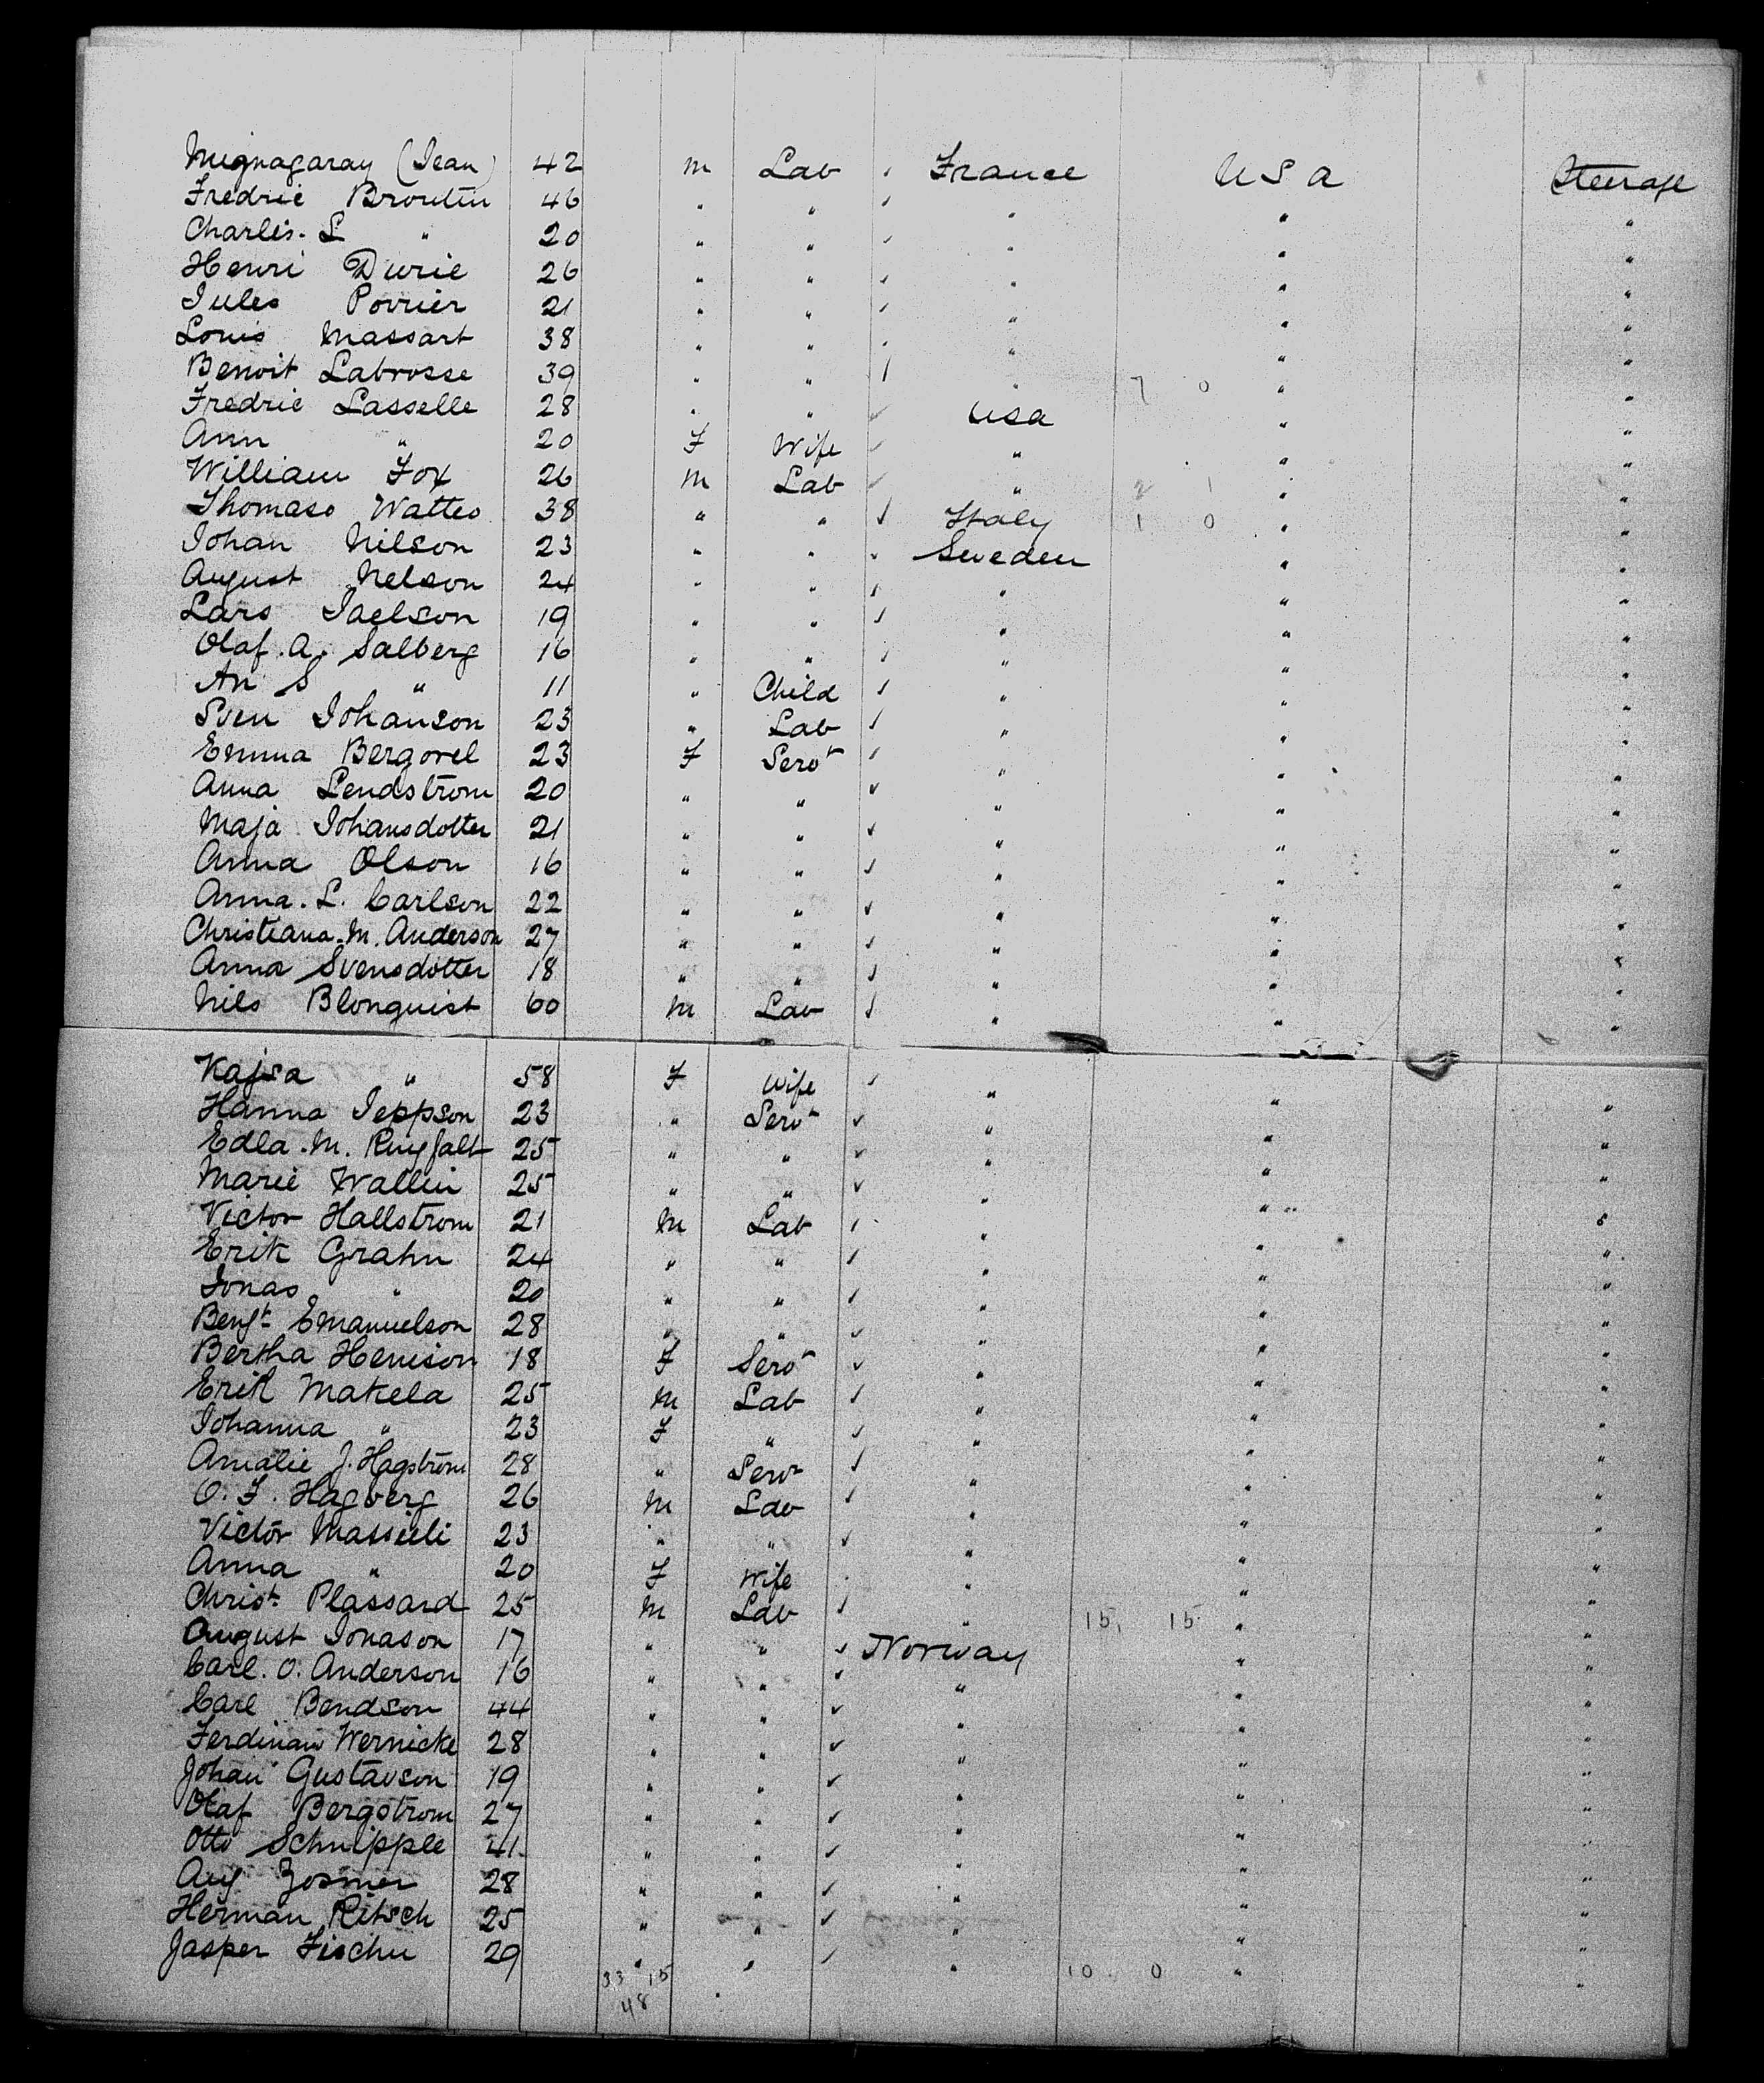 Mignagaray (Jean) 42 m Lab France U S a Steerage
Fredric Broutin 46 " " " " "
Charles. L " 20 " " " " "
Henri Durie 26 " " " " "
Jules Poirier 21 " " " " "
Louis Massart 38 " " " " "
Benoit Labrosse 39 " " " 7 0 " "
Fredric Lasselle 28 " " Usa " "
Ann " 20 F Wife " " "
William Fox 26 m Lab " 2 1 " "
Thomaso Watteo 38 " " Italy 1 0 " "
Johan Nilson 23 " " Sweden " "
August Nelson 24 " " " " "
Lars Jaelson 19 " " " " "
Olaf. A. Salberg 16 " " " " "
An S " 11 " Child " " "
Sven Johanson 23 " Lab " " "
Emma Bergovel 23 F Servt " " "
Anna Lendstrom 20 " " " " "
Maja Johansdotter 21 " " " " "
Anna Olson 16 " " " " "
Anna. L. Carlson 22 " " " " "
Christiana. M. Anderson 27 " " " " "
Anna Svensdotter 18 " " " " "
Nils Blonquist 60 m Lab " " "
Kajsa " 58 F Wife " " "
Hanna Jeppson 23 " Servt " " "
Edla. M. 25 " " " " "
Marie Wallin 25 " " " " "
Victor Hallstrom 21 m Lab " " "
Erik Grahn 24 " " " " "
Jonas " 20 " " " " "
Bengt Emanuelson 28 " " " " "
Bertha Henison 18 F Servt " " "
Erik Makela 25 m Lab " " "
Johanna " 23 F " " " "
Amalie J. Hagstrom 28 " Servt " " "
O. F. Hagberg 26 m Lab " " "
Victor Massieli 23 " " " " "
Anna " 20 F Wife " " "
Christ. Plassard 25 m Lab " 15, 15 " "
August Jonason 17 " " Norway " "
Carl. O. Anderson 16 " " " " "
Carl Bendson 44 " " " " "
Ferdinan Wernicke 28 " " " " "
Johan Gustavson 19 " " " " "
Olaf Bergstrom 27 " " " " "
Otto Schnipple 41 " " " " "
Aug 28 " " " " "
Herman Ritsch 25 " " " " "
Jasper Fischer 29 " " " 10 0 " "
33 15
48